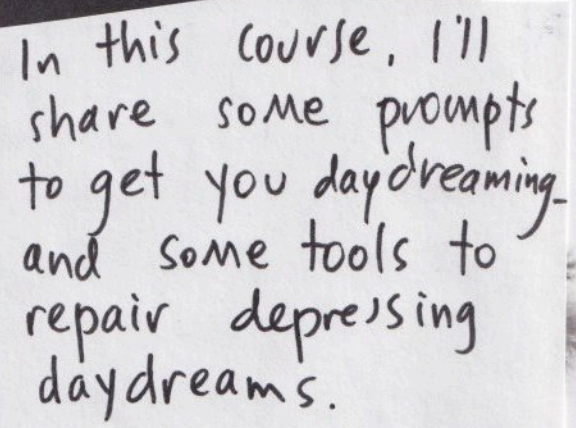 In this course, I'll
share some prompts
to get you daydreaming-
and some tools to
repair depressing
daydreams.